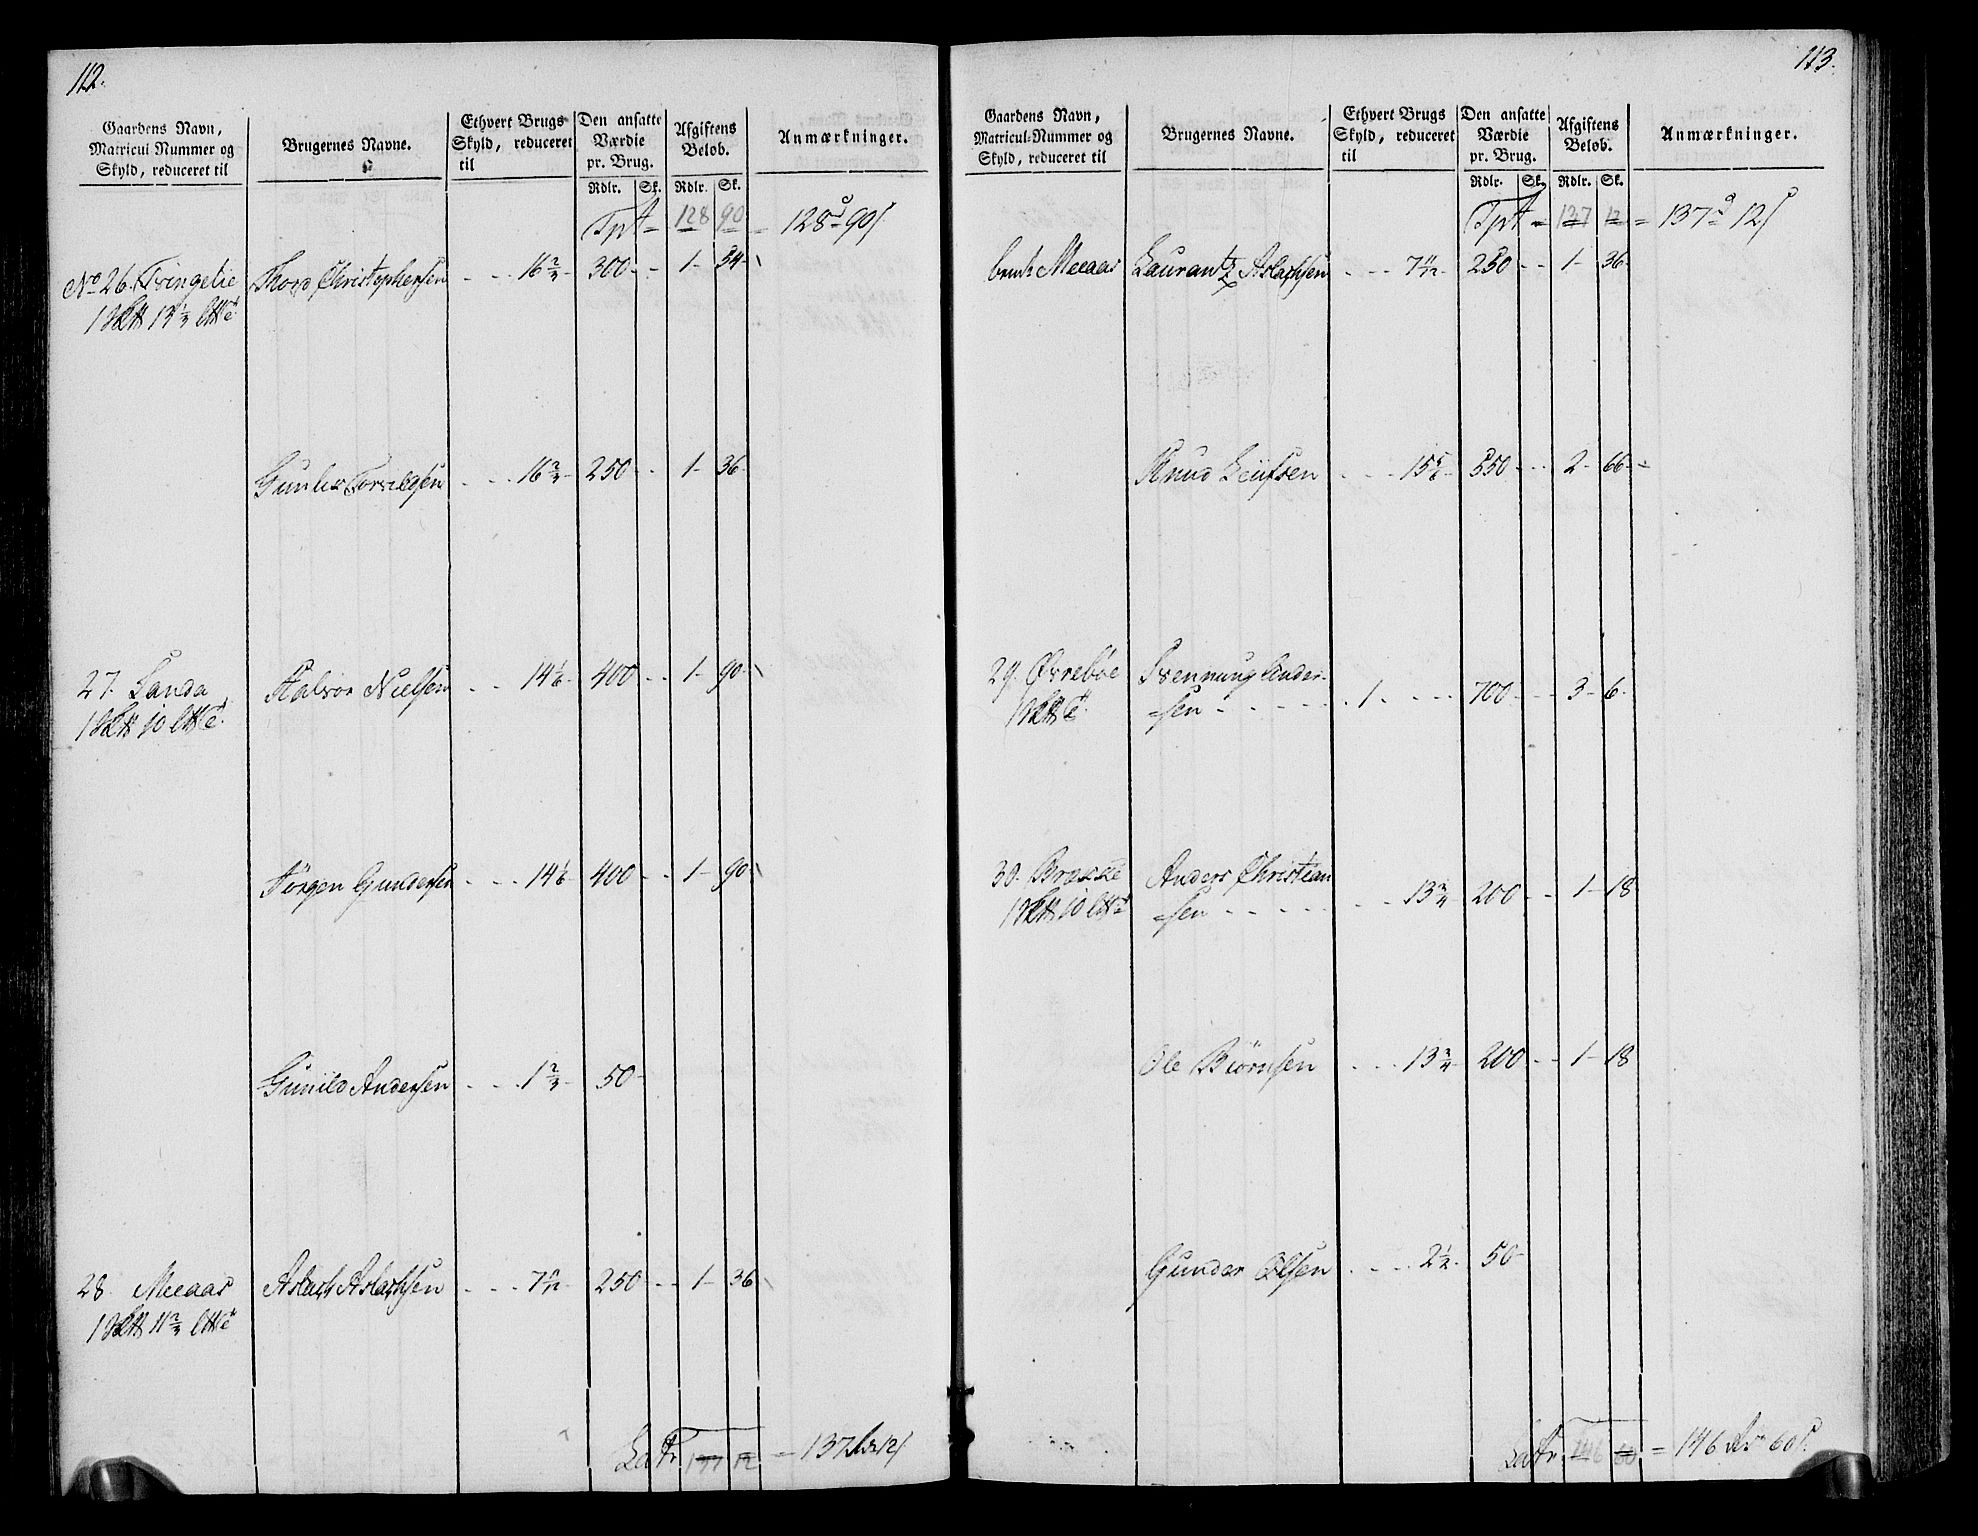 112.
Gaardens Navn,
Matricul Nummer og
Skyld, reduceret til
Brugernes Navne.
Ethvert Brugs
Skyld, reduceret
til
Den ansatte
Værdie
pr. Brug.
Rdlr. Sk.
Afgiftens
Beløb.
Rdlr. Sk.
Anmærkninger.
Tpt = 128 90 = 128 90
No 26. Tvingelie Thord Christophersen 16 2/3 300 1 54
13 1/3
Gunder 16 2/3 250 1 36
27. Landa Halvor Nielsen 14 1/6 400 1 90
10
Jörgen Gundersen 14 1/6 400 1 90
Gunild Andersen 1 2/3 50
28. Meeaas Aslach Aslachsen 7 11/12 250 1 36
11 2/3
Latr 137 12 = 137 12
113.
Gaardens Navn,
Matricul-Nummer og
Skyld, reduceret til
Brugernes Navne.
Ethvert Brugs
Skyld, reduceret
til
Den ansatte
Værdie
pr. Brug.
Rdlr. Sk.
Afgiftens
Beløb.
Rdlr. Sk.
Anmærkninger.
Tpt = 137 12 = 137 12
Meeaas Laurantz Aslachsen 7 11/12 250 1 36
Knud Leufsen 15 5/6 550 2 66
29. Øvrebøe Svennung Ander-
=sen 1 700 3 6
30. Brække Anders Christian
=sen 13 3/4 200 1 18
10
Ole Biörnsen 13 3/4 200 1 18
Gunder Olsen 2 1/2 50
Latr 146 60 = 146 Rdr 60